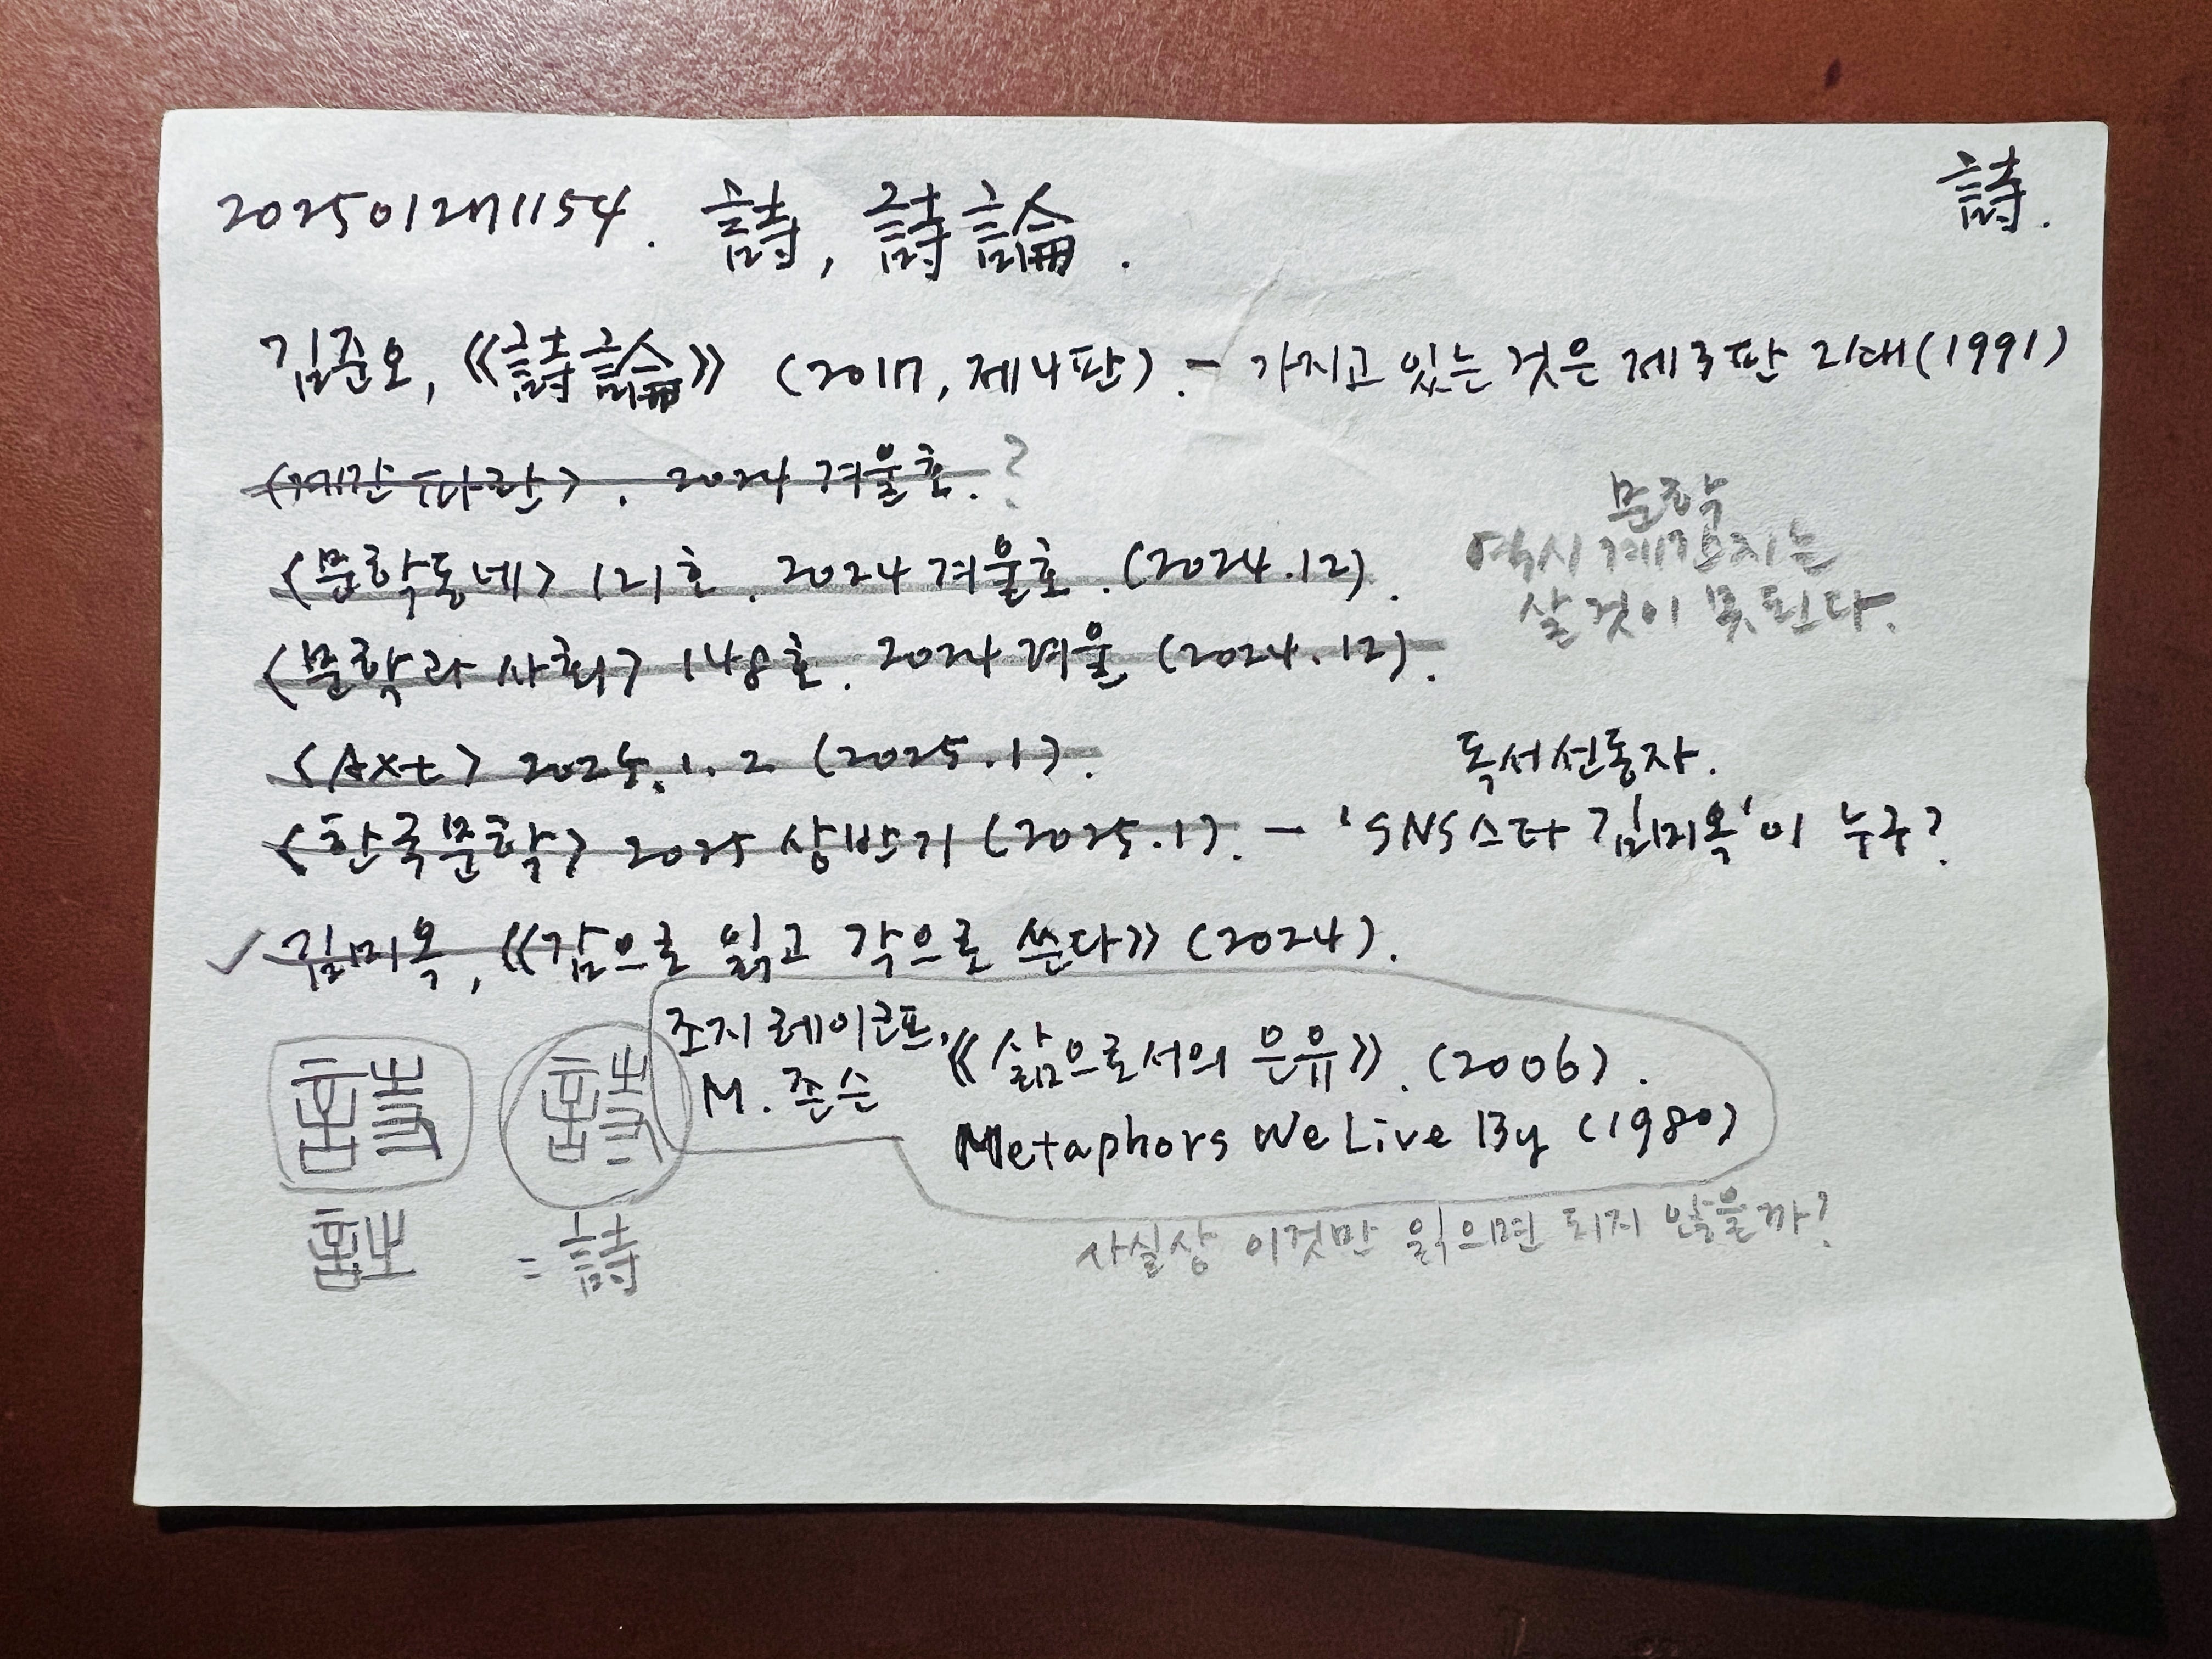 202501271154. 詩, 詩論.
詩.
김준오, 《詩論》 (2017, 제4판). - 가지고 있는 것은 제3판 21쇄(1991)
<계간 파란>. 2024 겨울호. ?
<문학동네> 121호. 2024 겨울호. (2024.12).
문학
역시 계간지는
살 것이 못 된다.
<문학과 사회> 148호. 2024 겨울 (2024.12).
<Axt> 2025.1.2 (2025.1).
독서선동자.
<한국문학> 2025 상반기 (2025.1). - 'SNS스타 김미옥'이 누구?
✓ 김미옥, 《감으로 읽고 각으로 쓴다》 (2024).
조지 레이코프,
M. 존슨
《삶으로서의 은유》. (2006).
Metaphors We Live By (1980)
사실상 이것만 읽으면 되지 않을까?
= 詩